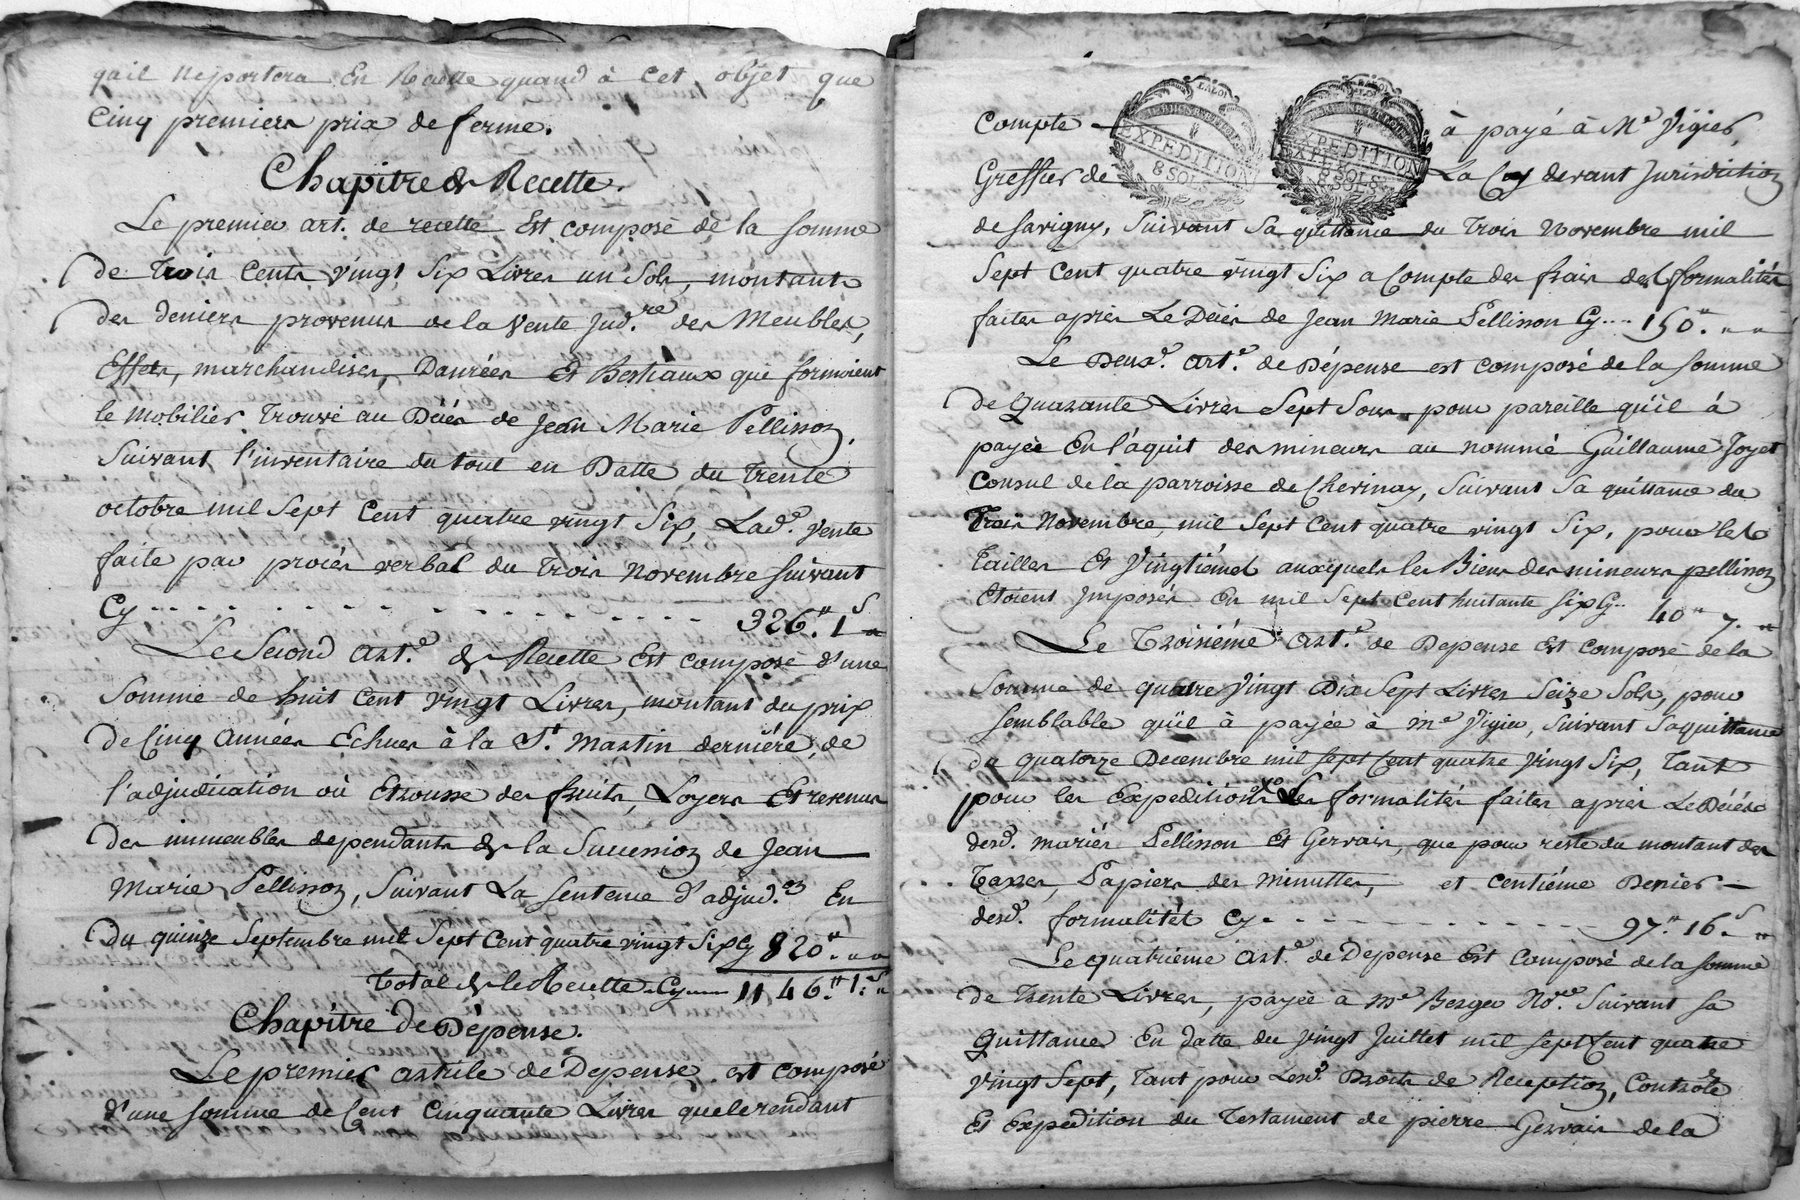 quil Reportera En Recette quand à Cet objet que
Cinq premiers prix de ferme.
Chapitre de Recette.
Le premier art. de recette Est composé de la somme
de trois Cents vingt Six Livres un Sols, montant
des deniers provenus de la Vente Jud.re des Meubles,
Effets, marchandises, Danrées Et Bestiaux qui formoient
le mobilier Trouvé au Décés de Jean Marie Pellisson,
Suivant l'inventaire du tout en Datte du Trente
octobre mil Sept Cent quatre vingt Six, Lad.e vente
faite par procés verbal du Trois Novembre suivant
Cy - - - - - - - - - - - 326.ll 1.S "
Le Second art.e de Recette Est composé d'une
Somme de huit Cent vingt Livres, montant du prix
de Cinq Années Echues à la St Martin derniére, de
l'adjudication où Etrousse des fruits, Loyers Et revenus
des immeubles dependants de la Succession de Jean
Marie Pellisson, Suivant La Sentence d'adjud.on En
Du quinze Septembre mil Sept Cent quatre vingt Six Cy 820.ll " "
Total de la Recette Cy 1146.ll 1.S "
Chapitre de Dépense.
Le premier article de Depense est composé
d'une somme de Cent Cinquante Livres que le rendant
Compte à payé à Me Vigier,
EXPEDITION
8 SOLS
EXPEDITION
8 SOLS
Greffier de La Cy devant Jurisdiction
de Savigny, Suivant Sa quittance du Trois Novembre mil
Sept Cent quatre vingt Six a Compte des frais des formalités
faites aprés Le Décés de Jean Marie Pellisson Cy.... 150.ll " "
Le Deux.e art.e de Dépense est composé de la somme
de Quarante Livres Sept Sous pour pareille qu'il à
payée En l'aquit des mineurs au nommé Guillaume Joyet
Consul de la parroisse de Chevinay, Suivant Sa quittance du
Trois Novembre, mil Sept Cent quatre vingt Six, pour les
Tailles Et Vingtiémes auxquels les Biens des mineurs pellisson
Etoient Jmposés En mil Sept Cent huitante six Cy.. 40.ll 7. "
Le Troisiéme art.e de Depense Est composé de la
Somme de quatre Vingt Dix Sept Livres Seize Sols, pour
semblable qu'il à payée à Me Vigier, Suivant Sa quittance
du quatorze Decembre mil Sept Cent quatre Vingt Six, Tant
pour les Expeditions des formalités faites aprés Le Décés
desd. mariés Pellisson Et Gervais, que pour reste du montant des
Taxes, Papiers des Minuttes, et centiéme Denier
desd. formalités Cy - - - - - - - - 97.ll 16.S "
Le quatriéme art.e de Depense Est Composé de la somme
de Trente Livres, payée à Me Berger No.re Suivant sa
Quittance En datte du Vingt Juillet mil Sept Cent quatre
Vingt Sept, Tant pour Lesd. Droits de Reception, Controle
Et Expedition du Testament de pierre Gervais de la